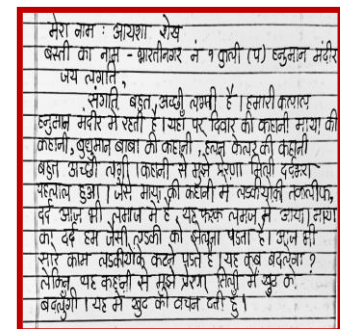 मेरा नाम : आयशा शेख
बस्ती का नाम - भारतीनगर नं १ कुर्ला (प) हनुमान मंदीर
जय संगति,
संगति बहुत अच्छी लगी है। हमारी क्लास
हनुमान मंदीर में रहती है। यहाँ पर दिवार की कहानी माया की
कहानी, बुधुमान बाबा की कहानी, हेलन केलर की कहानी
बहुत अच्छी लगी। कहानी से मुझे प्रेरणा मिली
एहसास हुआ। जैसे माया की कहानी में लडकीयोकी तकलीफ,
दर्द आज भी समाज में है, यह फरक समझ में आया। माया
का दर्द हम जैसी लडकी को झेलना पडता है। आज भी
सारे काम लडकीयोंको करने पडते है। यह कब बदलेगा ?
लेकिन यह कहानी से मुझे प्रेरणा मिली मैं खुद को
बदलुंगी। यह मैं खुद को वचन देती हुँ।